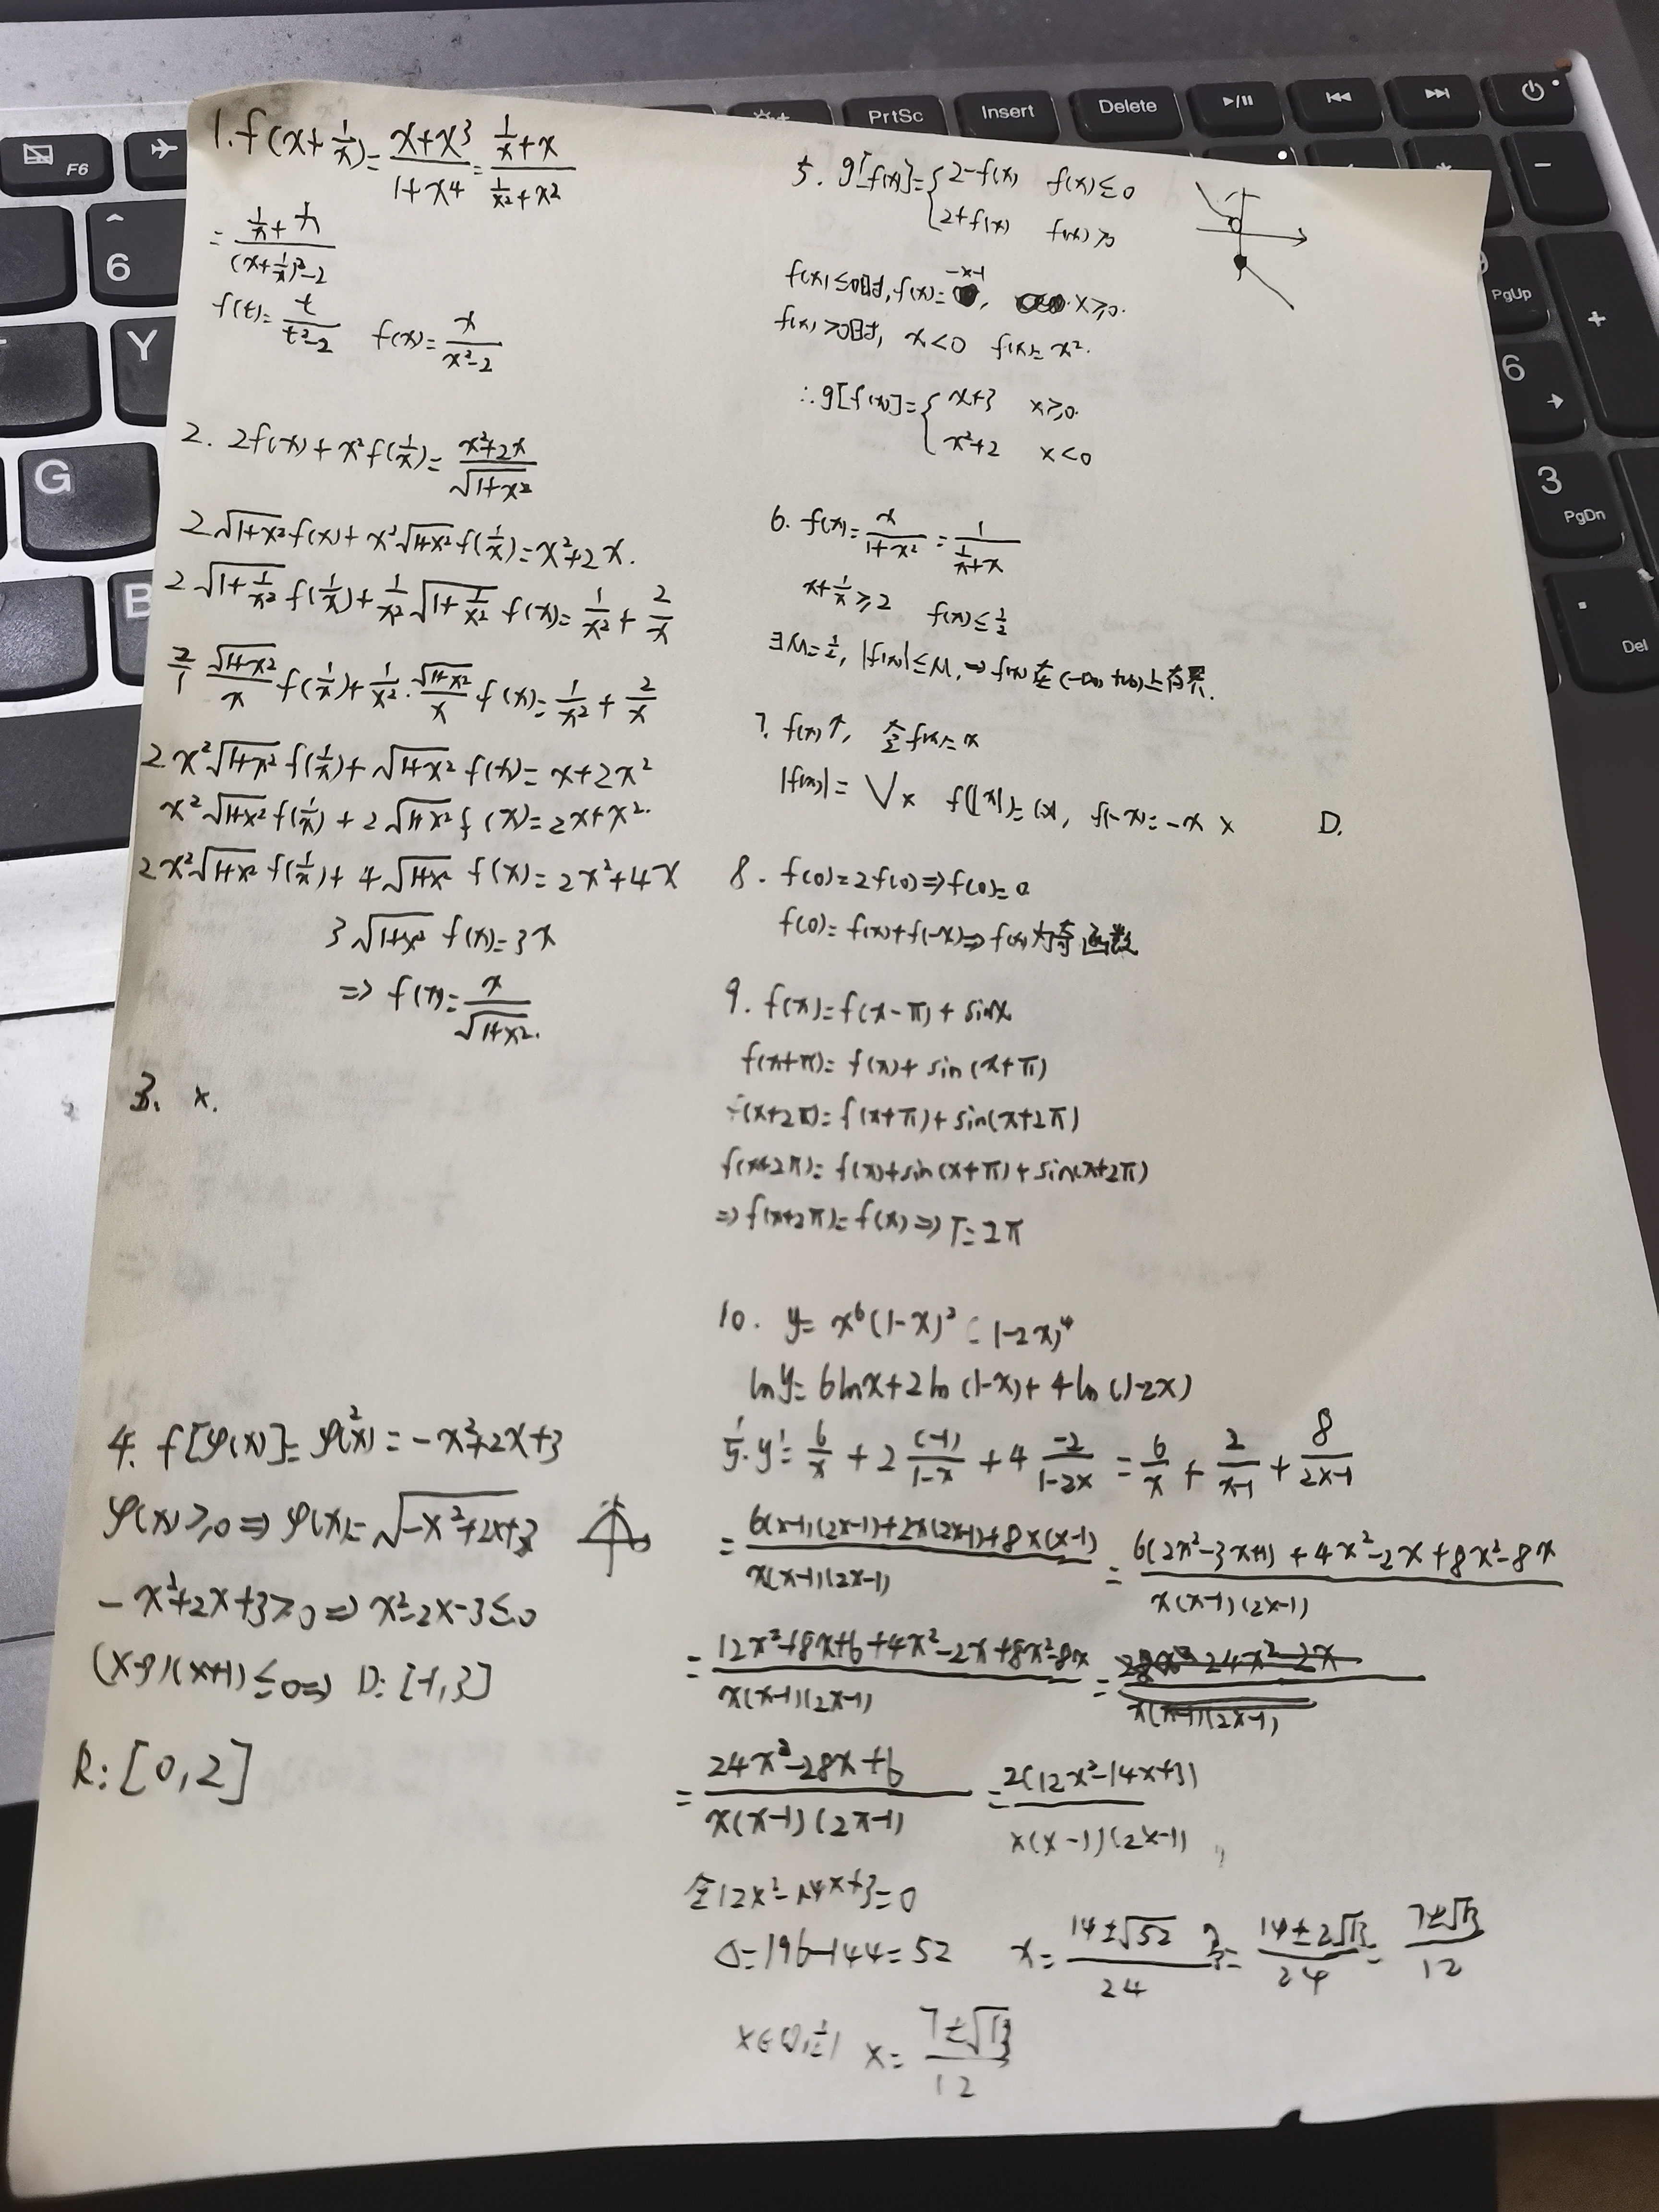 F6
PrtSc
Insert
Delete
6
Y
G
B
PgUp
6
3
PgDn
Del
+
-
1. f(x+1/x)= (x+x3)/(1+x4) = (1/x+x)/(1/x2+x2)
= (1/x+x)/((x+1/x)2-2)
f(t)= t/(t2-2) f(x)= x/(x2-2)
2. 2f(x)+x2f(1/x)= (x2+2x)/√(1+x2)
2√(1+x2) f(x)+x2√(1+x2) f(1/x)=x2+2x.
2√(1+1/x2) f(1/x)+1/x2 √(1+1/x2) f(x)= 1/x2 + 2/x
2/1 √(1+x2)/x f(1/x)+1/x2 · √(1+x2)/x f(x)= 1/x2 + 2/x
2x2√(1+x2) f(1/x)+√(1+x2) f(x)= x+2x2
x2√(1+x2) f(1/x)+2√(1+x2) f(x)=2x+x2.
2x2√(1+x2) f(1/x)+4√(1+x2) f(x)=2x2+4x
3√(1+x2) f(x)=3x
=> f(x)= x/√(1+x2).
3. x.
4. f[φ(x)]= φ2(x) = -x2+2x+3
φ(x)≥0 => φ(x)=√(-x2+2x+3)
-x2+2x+3≥0 => x2-2x-3≤0
(x-3)(x+1)≤0 => D: [-1,3]
R: [0,2]
5. g[f(x)]={ 2-f(x) f(x)≤0
2+f(x) f(x)>0
f(x)≤0时, f(x)= -x-1, x≥0.
f(x)>0时, x<0 f(x)= x2.
∴g[f(x)]={ x+3 x≥0.
x2+2 x<0
6. f(x)= x/(1+x2) = 1/(1/x+x)
x+1/x≥2 f(x)≤1/2
∃M=1/2, |f(x)|≤M, => f(x)在(-∞,+∞)上有界.
7. f(x)↑, 令f(x)=x
|f(x)|= V x f(|x|)=|x|, f(-x)=-x x D.
8. f(0)=2f(0) => f(0)=0
f(0)= f(x)+f(-x) => f(x)为奇函数
9. f(x)=f(x-π)+sinx
f(x+π)= f(x)+sin(x+π)
f(x+2π)= f(x+π)+sin(x+2π)
f(x+2π)= f(x)+sin(x+π)+sin(x+2π)
=> f(x+2π)= f(x) => T=2π
10. y= x6(1-x)2(1-2x)4
lny= 6lnx+2ln(1-x)+4ln(1-2x)
1/y·y'= 6/x + 2 (-1)/(1-x) + 4 -2/(1-2x) = 6/x + 2/(x-1) + 8/(2x-1)
= (6(x-1)(2x-1)+2x(2x-1)+8x(x-1))/(x(x-1)(2x-1)) = (6(2x2-3x+1)+4x2-2x+8x2-8x)/(x(x-1)(2x-1))
= (12x2-18x+6+4x2-2x+8x2-8x)/(x(x-1)(2x-1)) =
= (24x2-28x+6)/(x(x-1)(2x-1)) = 2(12x2-14x+3)/(x(x-1)(2x-1)),
令12x2-14x+3=0
Δ=196-144=52 x= (14±√52)/24 = (14±2√13)/24 = (7±√13)/12
x∈(0,1/2) x= (7±√13)/12